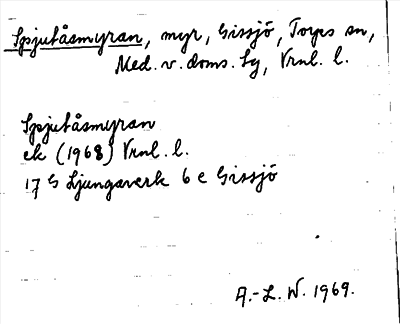 Spjutåsmyran, myr, Gissjö, Torps sn,
Med. v. doms. tg, Vrnl. l.
Spjutåsmyran
ek (1968) Vrnl. l.
17 G Ljungaverk 6 e Gissjö
A.-L. W. 1969.